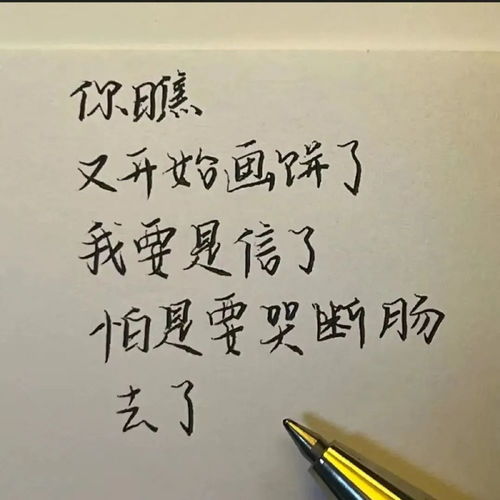 你瞧
又开始画饼了
我要是信了
怕是要哭断肠
去了